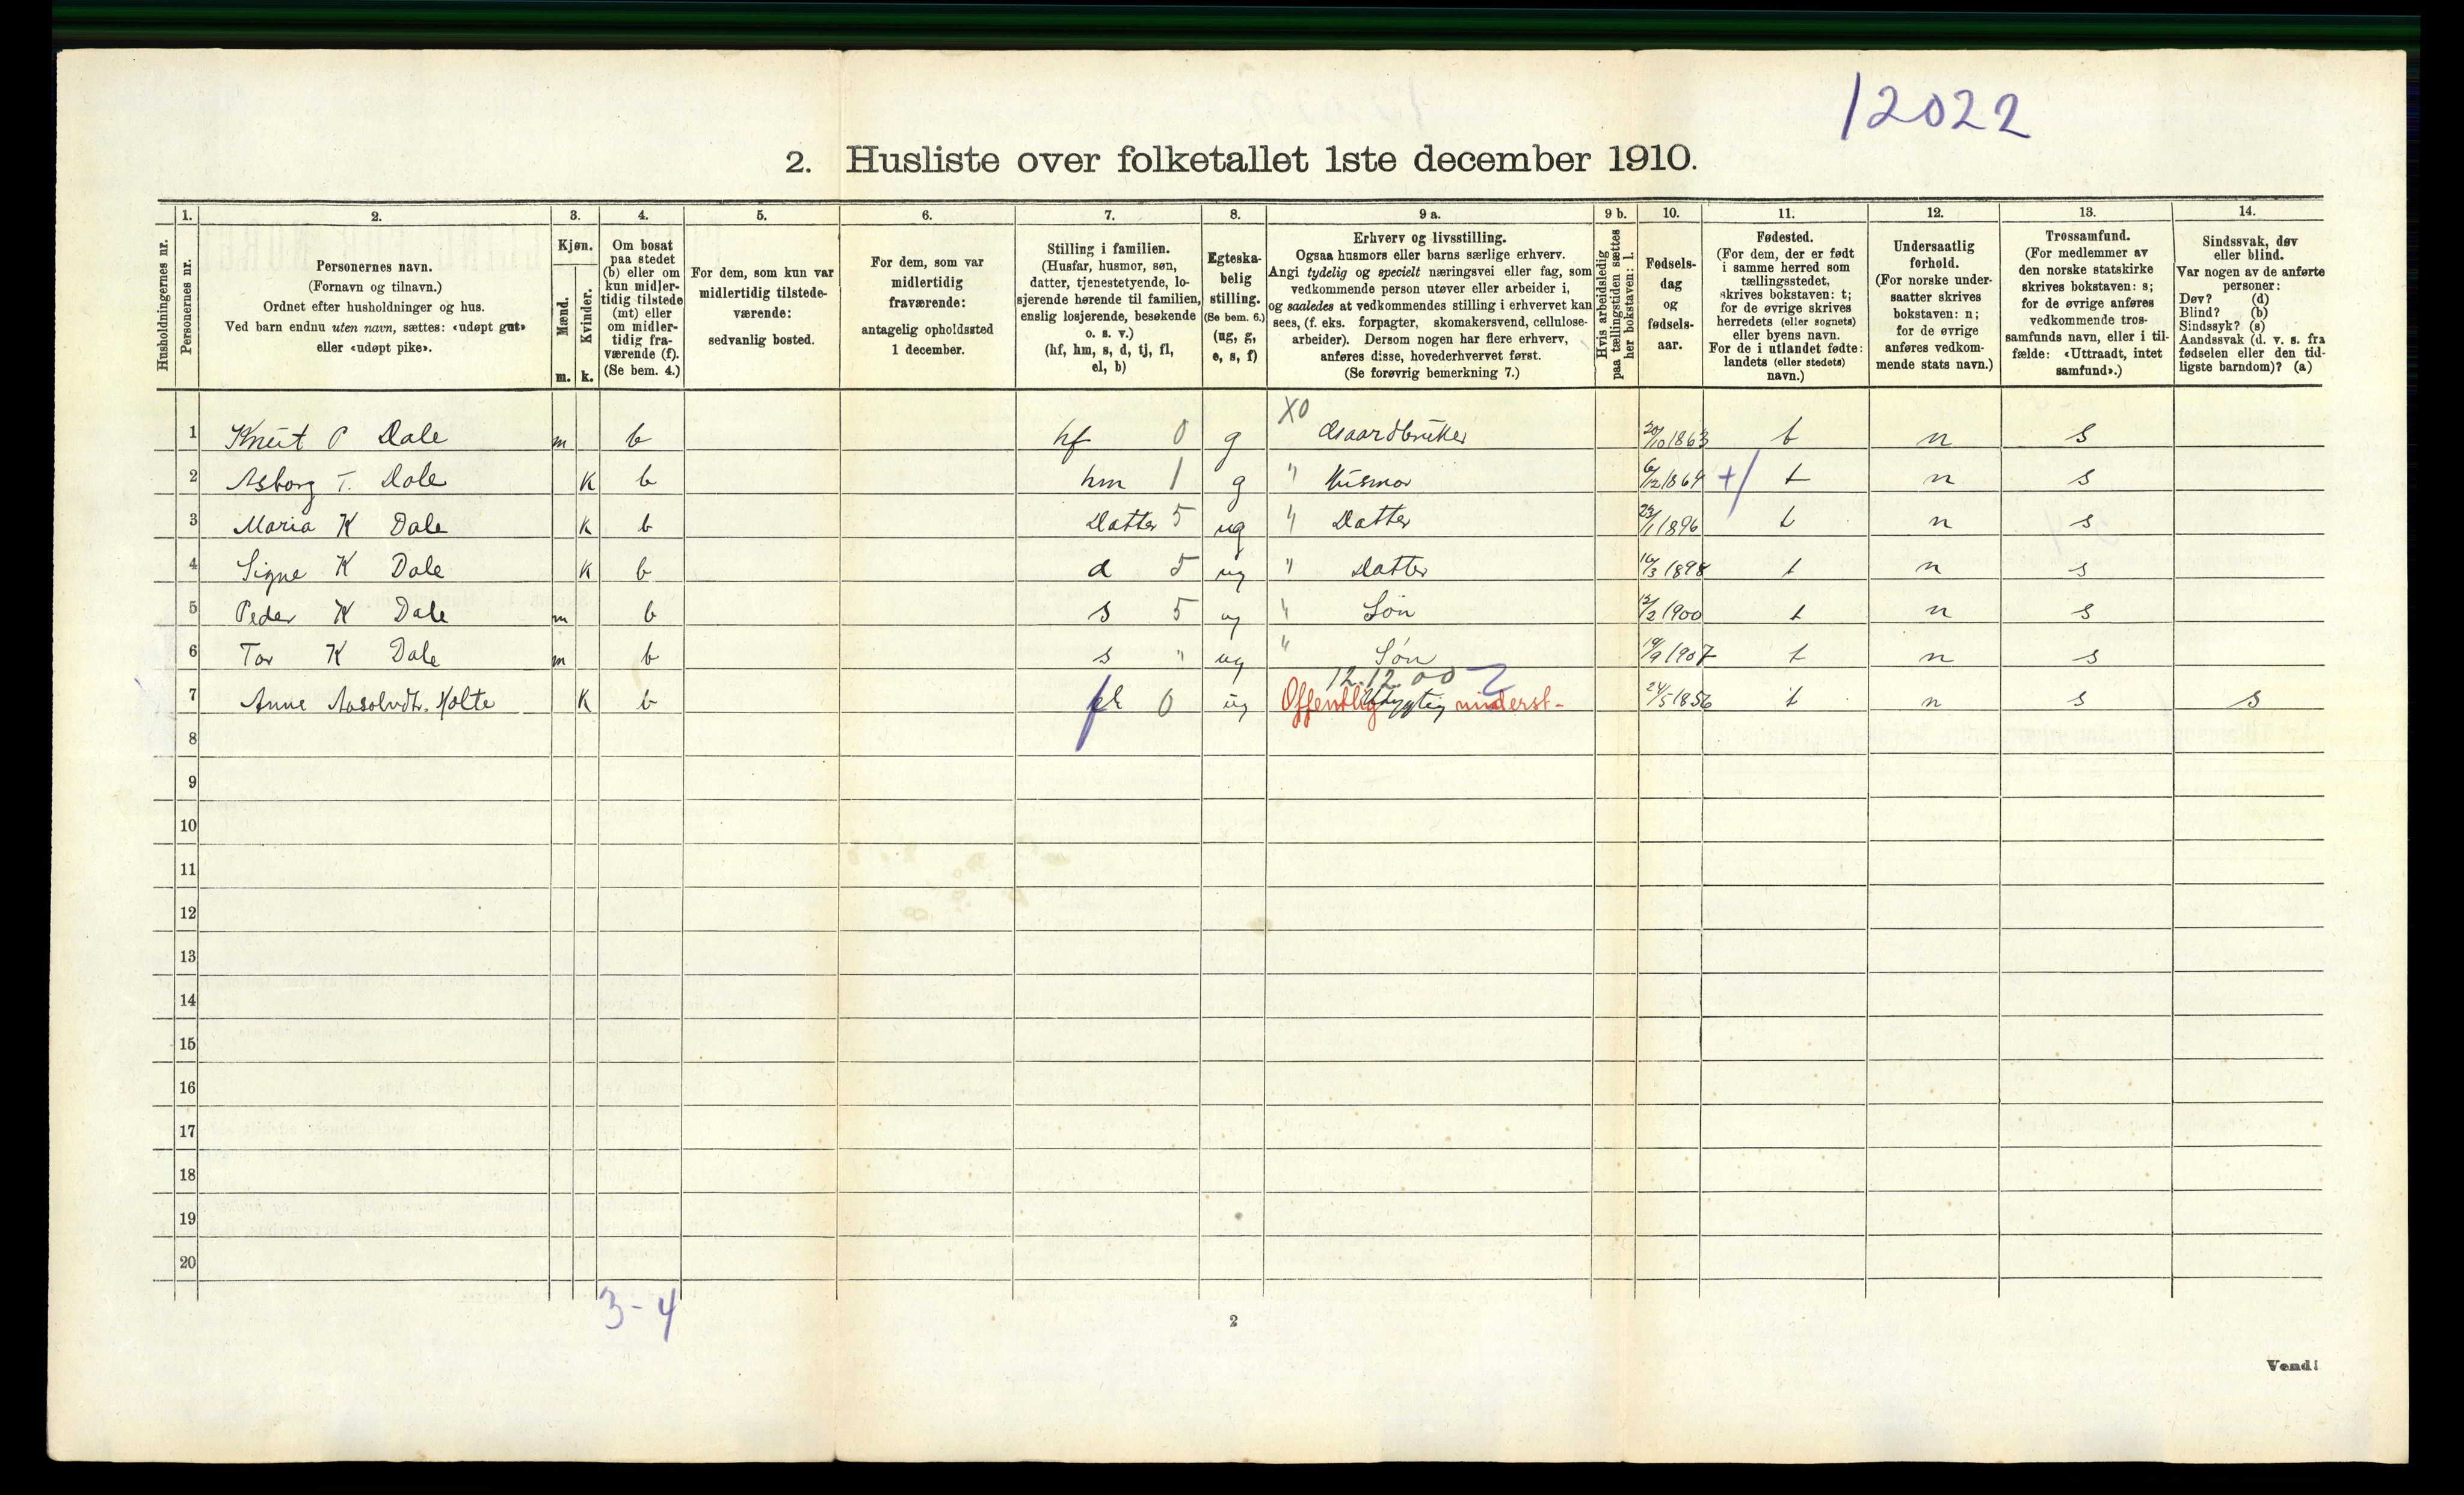 12022
2. Husliste over folketallet 1ste december 1910.
Husholdningernes nr.
1.
Personernes nr.
2.
Personernes navn.
(Fornavn og tilnavn.)
Ordnet efter husholdninger og hus.
Ved barn endnu uten navn, sættes: «udøpt gut»
eller «udøpt pike».
3.
Kjøn.
Mænd.
m.
Kvinder.
k.
4.
Om bosat
paa stedet
(b) eller om
kun midler-
tidig tilstede
(mt) eller
om midler-
tidig fra-
værende (f).
(Se bem. 4.)
5.
For dem, som kun var
midlertidig tilstede-
værende:
sedvanlig bosted.
6.
For dem, som var
midlertidig
fraværende:
antagelig opholdssted
1 december.
7.
Stilling i familien.
(Husfar, husmor, søn,
datter, tjenestetyende, lo-
sjerende hørende til familien,
enslig losjerende, besøkende
o. s. v.)
(hf, hm, s, d, tj, fl,
el, b)
8.
Egteska-
belig
stilling.
(Se bem. 6.)
(ug, g,
e, s, f)
9 a.
Erhverv og livsstilling.
Ogsaa husmors eller barns særlige erhverv.
Angi tydelig og specielt næringsvei eller fag, som
vedkommende person utøver eller arbeider i,
og saaledes at vedkommendes stilling i erhvervet kan
sees, (f. eks. forpagter, skomakersvend, cellulose-
arbeider). Dersom nogen har flere erhverv,
anføres disse, hovederhvervet først.
(Se forøvrig bemerkning 7.)
9 b.
Hvis arbeidsledig
paa tællingstiden sættes
her bokstaven: l.
10.
Fødsels-
dag
og
fødsels-
aar.
11.
Fødested.
(For dem, der er født
i samme herred som
tællingsstedet,
skrives bokstaven: t;
for de øvrige skrives
herredets (eller sognets)
eller byens navn.
For de i utlandet fødte:
landets (eller stedets)
navn.)
12.
Undersaatlig
forhold.
(For norske under-
saatter skrives
bokstaven: n;
for de øvrige
anføres vedkom-
mende stats navn.)
13.
Trossamfund.
(For medlemmer av
den norske statskirke
skrives bokstaven: s;
for de øvrige anføres
vedkommende tros-
samfunds navn, eller i til-
fælde: «Uttraadt, intet
samfund».)
14.
Sindssvak, døv
eller blind.
Var nogen av de anførte
personer:
Døv? (d)
Blind? (b)
Sindssyk? (s)
Aandssvak (d. v. s. fra
fødselen eller den tid-
ligste barndom)? (a)
X0
1 Knut P Dale m b hf 0 g Gaardbruker 20/10 1863 t n s
2 Asborg T. Dale K b hm 1 g " Husmor 6/12 1864 +/ t n s
3 Maria K Dale K b Datter 5 ug " Datter 23/1 1896 t n s
4 Signe K Dale K b d 5 ug " Datter 16/3 1898 t n s
5 Peder K Dale m b s 5 ug " Søn 12/2 1900 t n s
6 Tor K Dale m b s " ug " Søn 19/9 1907 t n s
12.12.00
7 Anne Aasolvdt. Holte K b 0 ug Offentlig underst- 24/5 1856 t n s s
8
9
10
11
12
13
14
15
16
17
18
19
20
3-4
2
Vend!